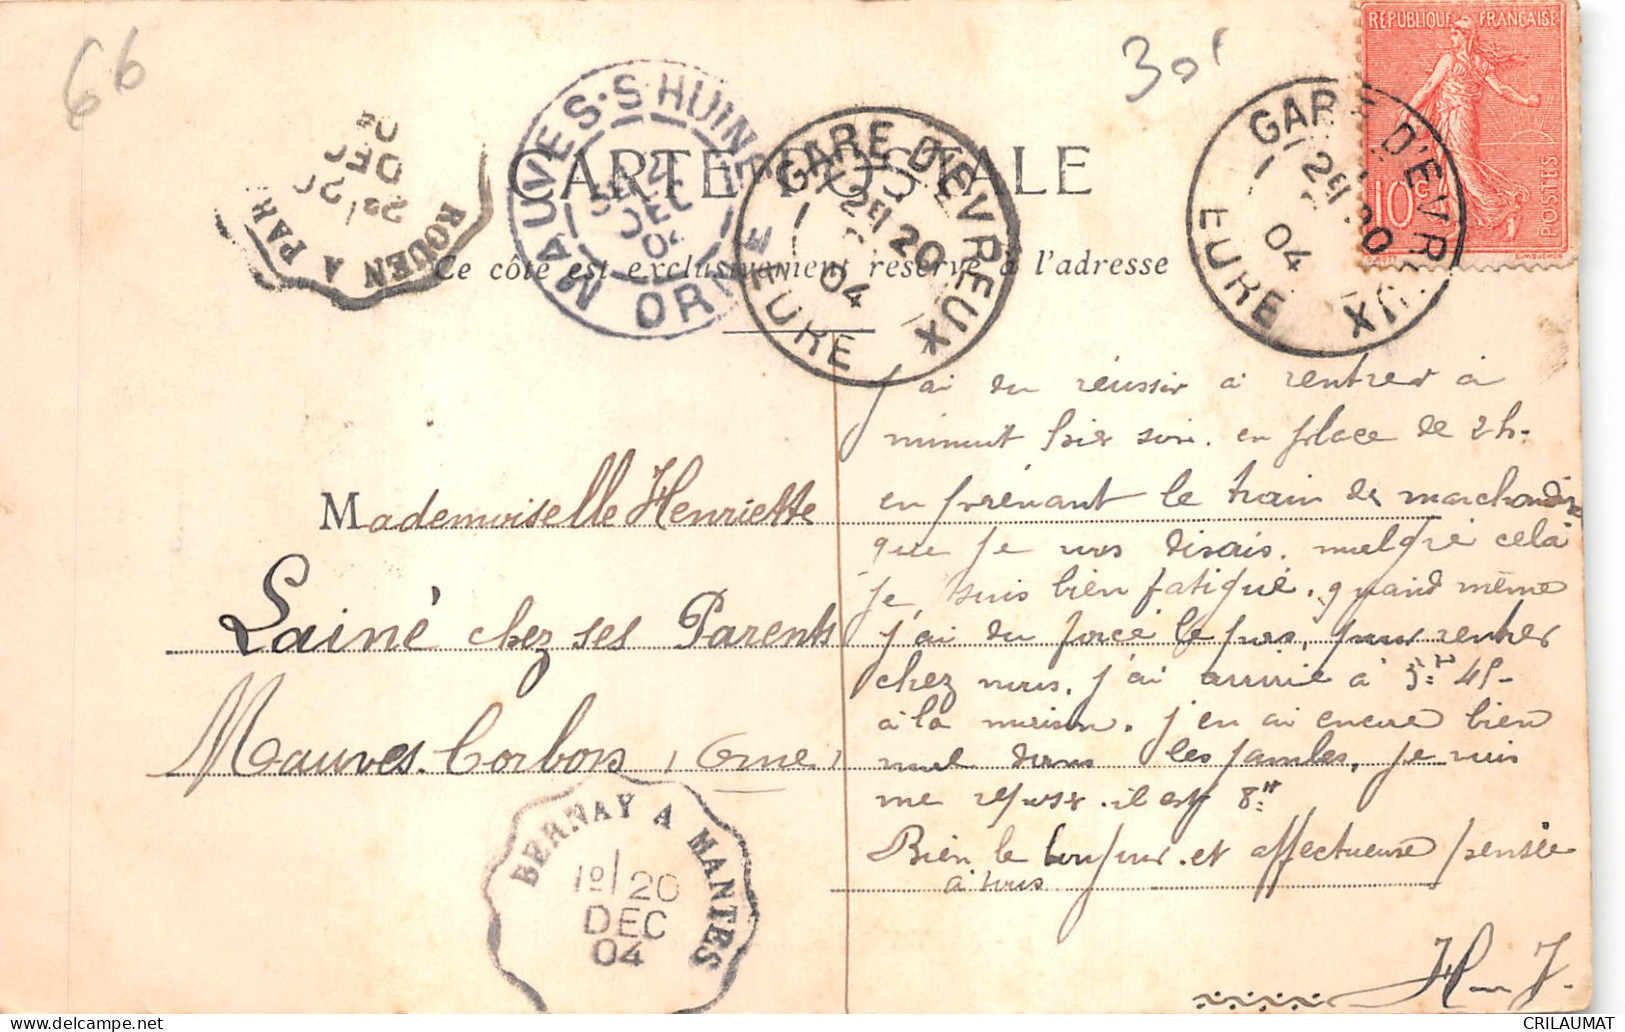 66
30f
RÉPUBLIQUE FRANÇAISE
10c
POSTES
GARE D'EVREUX
EURE
2E 20
04
GARE D'EVREUX
EURE
2E 20
04
MAUVES-S-HUINE
ORNE
DEC
04
ROUEN A PAR
20
DEC
CARTE POSTALE
Ce côté est exclusivement réservé à l'adresse
Mademoiselle Henriette
Lainé chez ses Parents
Mauves. Corbon (Orne)
BERNAY A MANTES
1º/20
DEC
04
J'ai du réussir a rentrer à
minuit hier soir. en place de 2h.
en prénant le train de marchandise
que je vous disais. malgré celà
je suis bien fatigué. quand même
j'ai du forcé le pas, pour rentrer
chez nous. j'ai arrivé à 3H 45-
à la maison. j'en ai encore bien
mal dans les jambes, je vais
me reposer. il est 8H
Bien le bonjour. et affectueuse pensée
à tous
H J.
CRILAUMAT